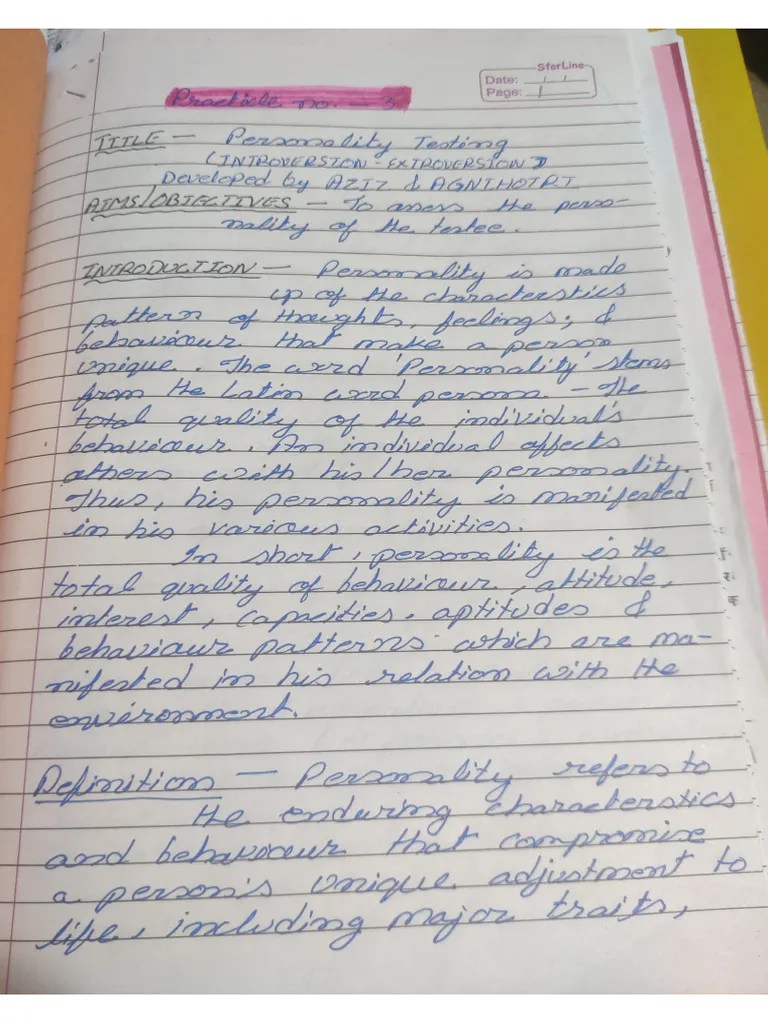 SterLine
Date: / /
Page: 1
Practicle no. - 3
TITLE - Personality Testing
(INTROVERSION - EXTROVERSION)
Developed by AZIZ & AGNIHOTRI
AIMS/OBJECTIVES - To assess the perso-
nality of the testee.
INTRODUCTION - Personality is made
up of the characterstics
pattern of thoughts, feelings, &
behaviour that make a person
unique. The word 'Personality' stems
from the Latin word persona. - The
total quality of the individual's
behaviour. An individual affects
others with his/her personality.
Thus, his personality is manifested
in his various activities.
In short, personality is the
total quality of behaviour, attitude,
interest, capacities, aptitudes &
behaviour patterns which are ma-
nifested in his relation with the
environment.
Definition - Personality refers to
the enduring characterstics
and behaviour that compromise
a person's unique adjustment to
life, including major traits,